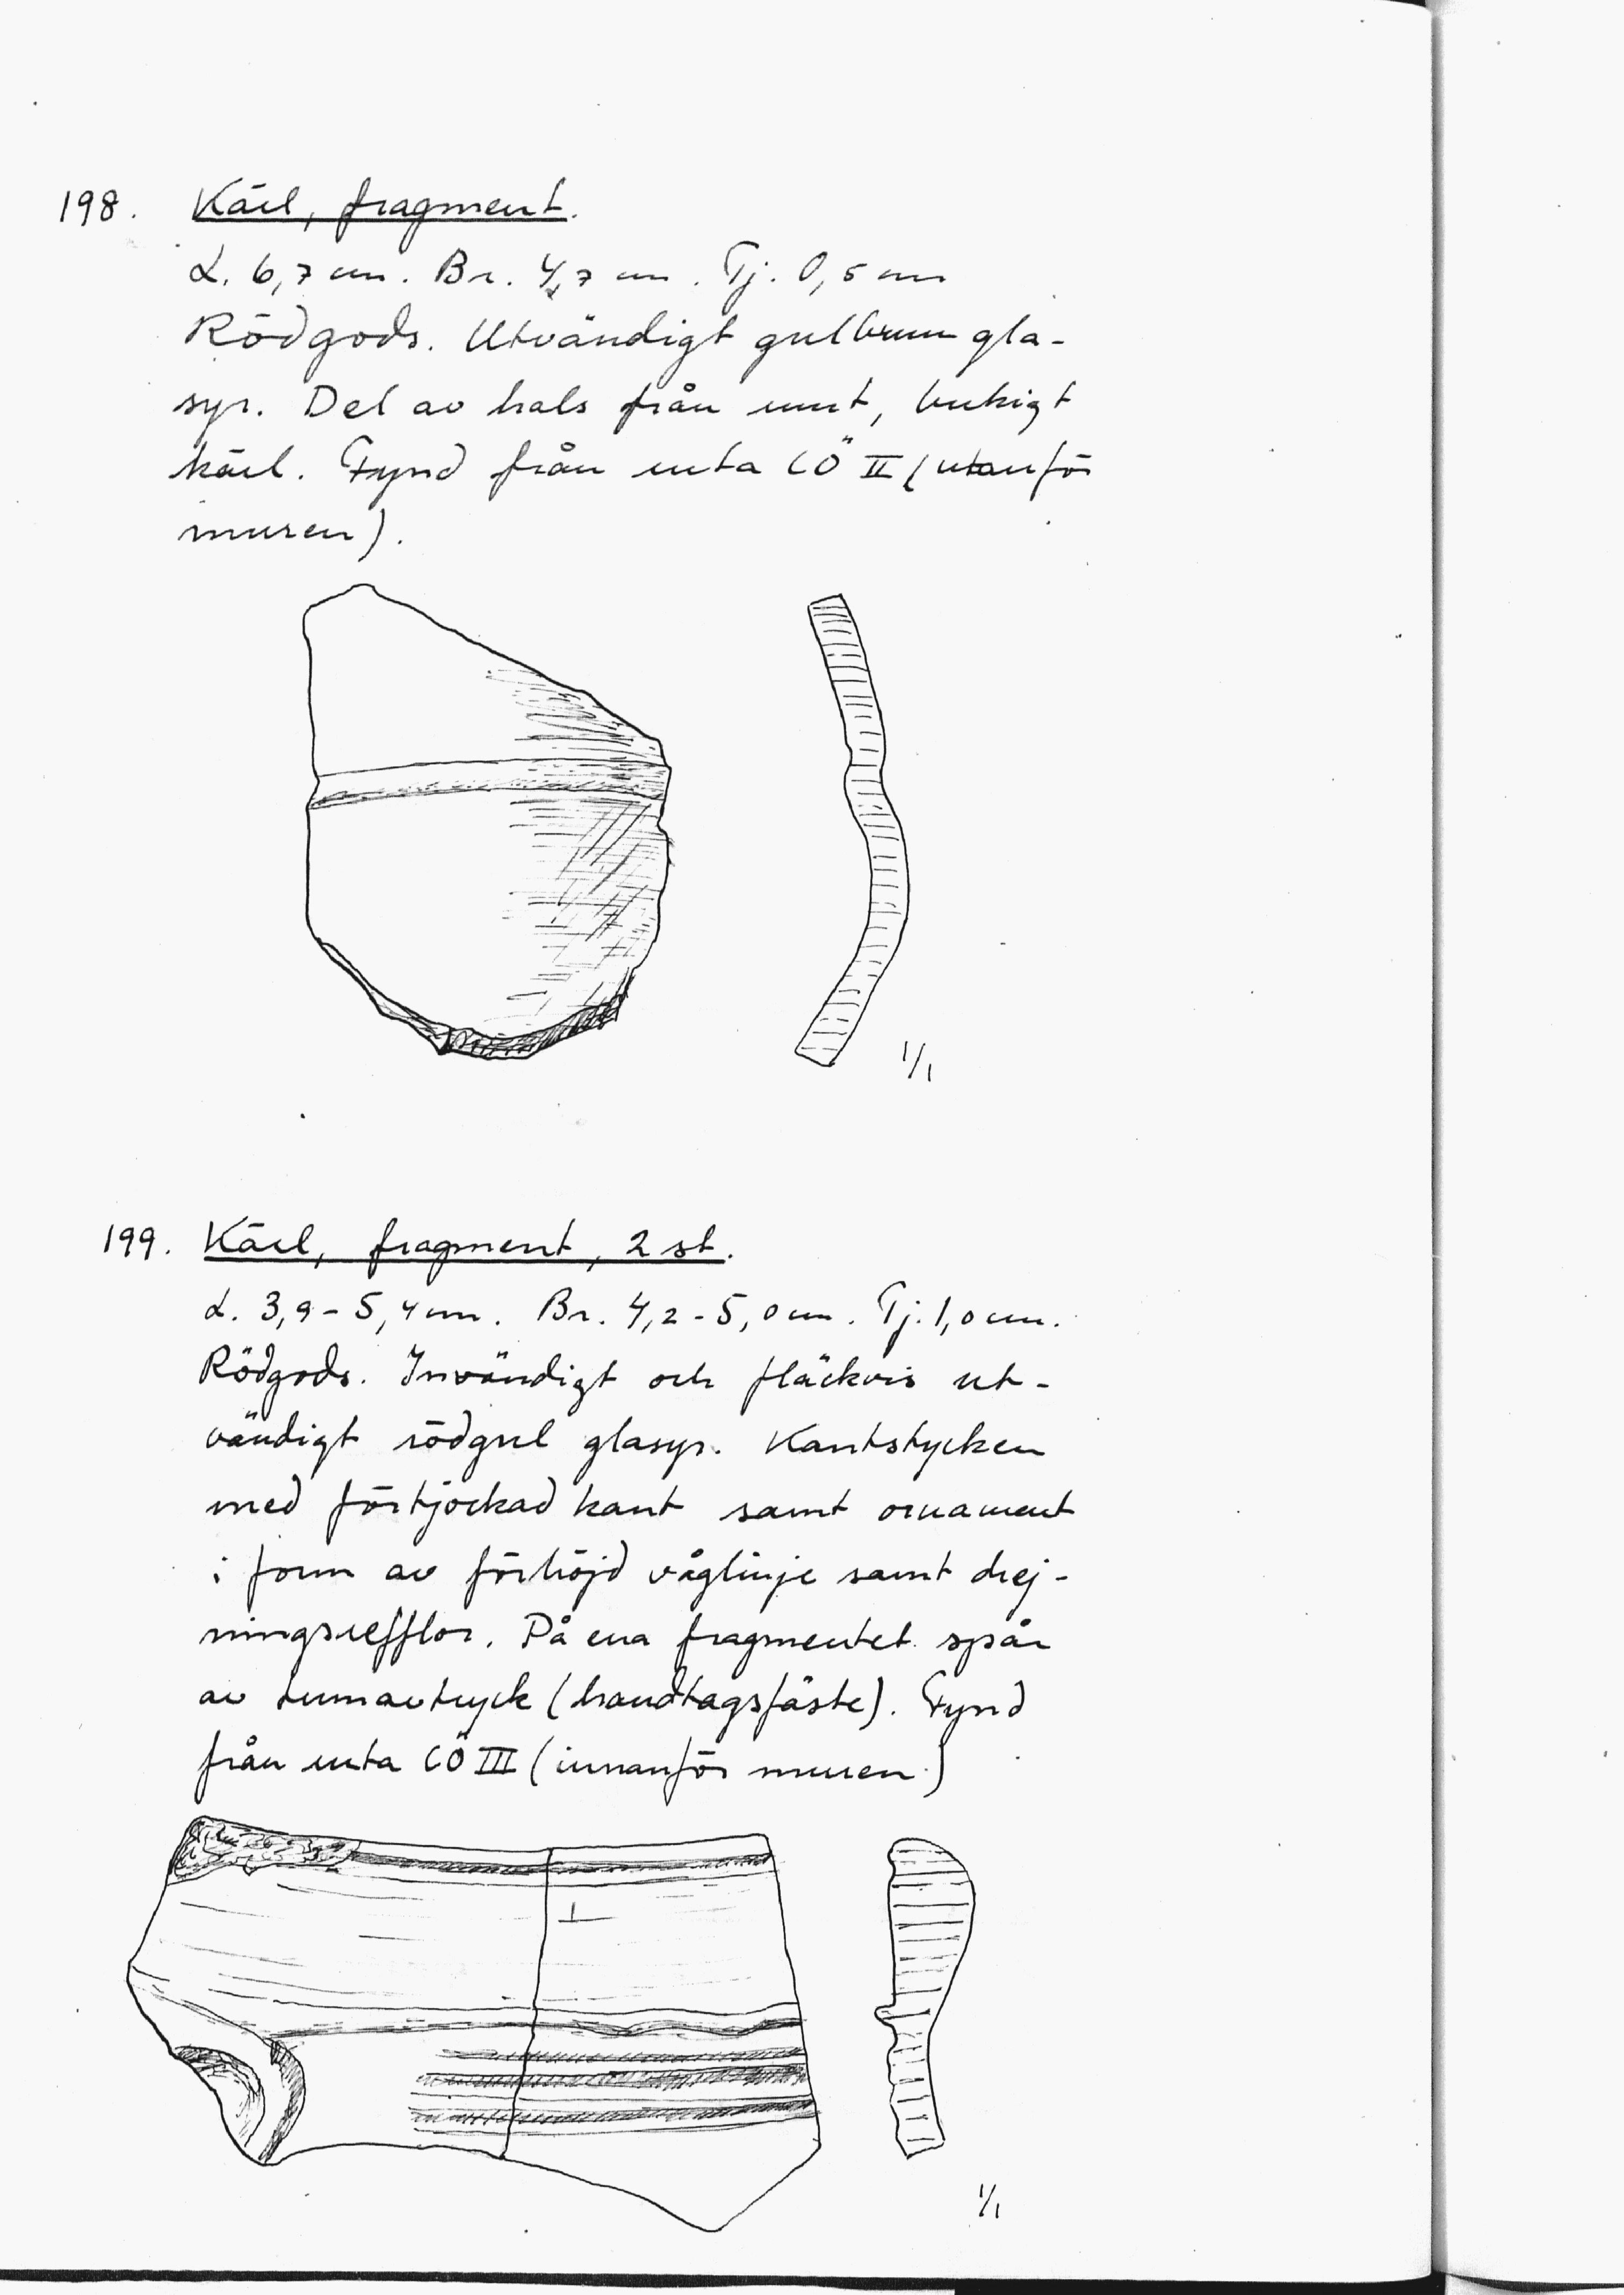 198. Kärl, fragment.
L. 6,7 cm. Br. 4,7 cm. Tj. 0,5 cm
Rödgods. Utvändigt gulbrun gla-
syr. Del av hals från runt, bukigt
kärl. Fynd från ruta CÖ II (utanför
muren).
1/1
199. Kärl, fragment, 2 st.
L. 3,9-5,4 cm. Br. 4,2-5,0 cm. Tj. 1,0 cm.
Rödgods. Invändigt och fläckvis ut-
vändigt rödgul glasyr. Kantstycken
med förtjockad kant samt ornament
i form av förhöjd våglinje samt drej-
ningsrefflor. På ena fragmentet spår
av tumavtryck (handtagsfäste). Fynd
från ruta CÖ III (innanför muren)
1/1